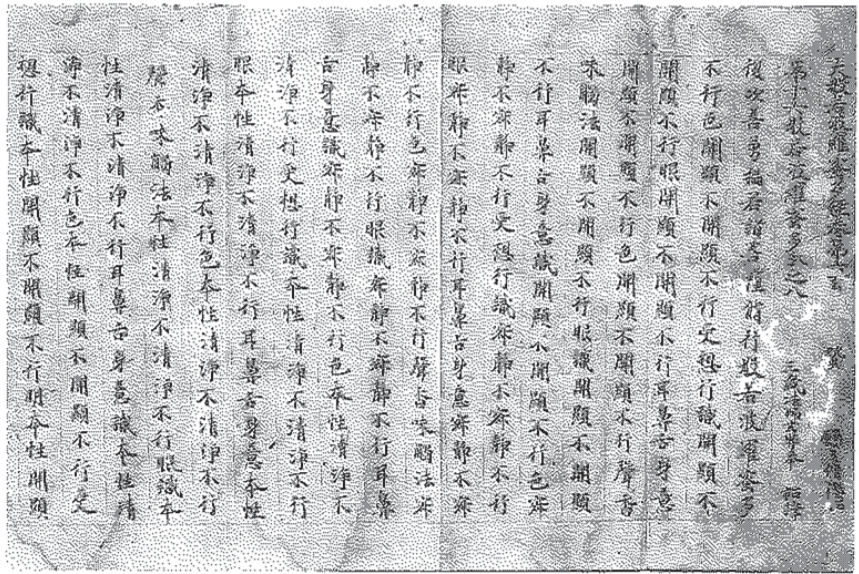 大般若波羅蜜多經卷第六百
第十六般若波羅蜜多分之八 三藏法師玄奘奉 詔譯
復次善勇猛若諸菩薩脩行般若波羅蜜多
不行色開顯不開顯不行受想行識開顯不
開顯不行眼開顯不開顯不行耳鼻舌身意
開顯不開顯不行色開顯不開顯不行聲香
味觸法開顯不開顯不行眼識開顯不開顯
不行耳鼻舌身意識開顯不開顯不行色寂
靜不寂靜不行受想行識寂靜不寂靜不行
眼寂靜不寂靜不行耳鼻舌身意寂靜不寂
靜不行色寂靜不寂靜不行聲香味觸法寂
靜不寂靜不行眼識寂靜不寂靜不行耳鼻
舌身意識寂靜不寂靜不行色本性清淨不
清淨不行受想行識本性清淨不清淨不行
眼本性清淨不清淨不行耳鼻舌身意本性
清淨不清淨不行色本性清淨不清淨不行
聲香味觸法本性清淨不清淨不行眼識本
性清淨不清淨不行耳鼻舌身意識本性清
淨不清淨不行色本性開顯不開顯不行受
想行識本性開顯不開顯不行眼本性開顯